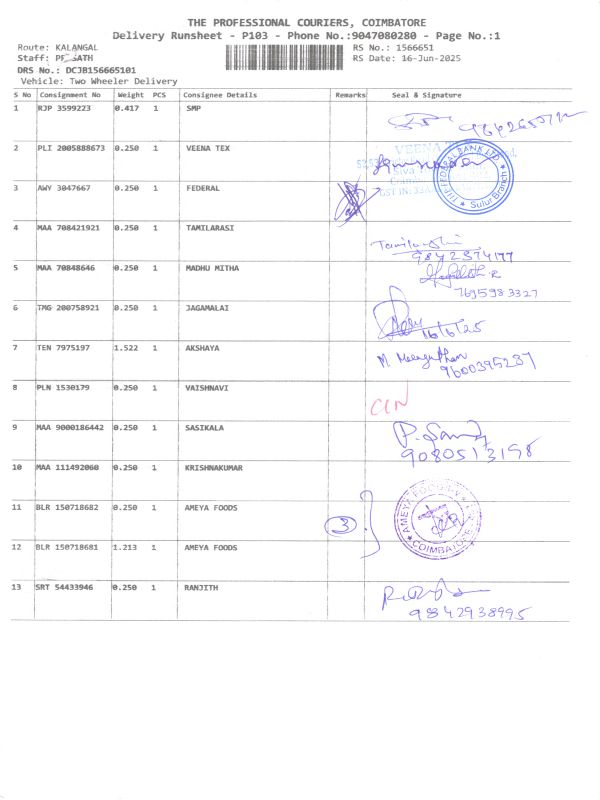 THE PROFESSIONAL COURIERS, COIMBATORE
Delivery Runsheet - P103 - Phone No.:9047080280 - Page No.:1
Route: KALANGAL
RS No.: 1566651
Staff:
RS Date: 16-Jun-2025
DRS No.: DCJB156665101
Vehicle: Two Wheeler Delivery
S No Consignment No Weight PCS Consignee Details Remarks Seal & Signature
1 RJP 3599223 0.417 1 SMP
2 PLI 2005888673 0.250 1 VEENA TEX
VEENA
FEDERAL BANK LTD
Sulur Branch
3 AWY 3047667 0.250 1 FEDERAL
4 MAA 708421921 0.250 1 TAMILARASI
9842374177
5 MAA 70848646 0.250 1 MADHU MITHA
7695983327
6 TMG 200758921 0.250 1 JAGAMALAI
16/6/25
7 TEN 7975197 1.522 1 AKSHAYA
9600395237
8 PLN 1530179 0.250 1 VAISHNAVI
9 MAA 9000186442 0.250 1 SASIKALA
9080513198
10 MAA 111492060 0.250 1 KRISHNAKUMAR
11 BLR 150718682 0.250 1 AMEYA FOODS
3
AMEYA FOODS
COIMBATORE
12 BLR 150718681 1.213 1 AMEYA FOODS
13 SRT 54433946 0.250 1 RANJITH
9842938995